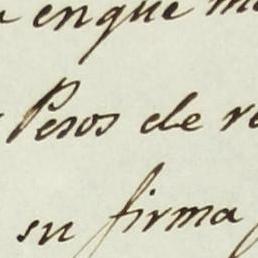 enque
Pesos de
su firma